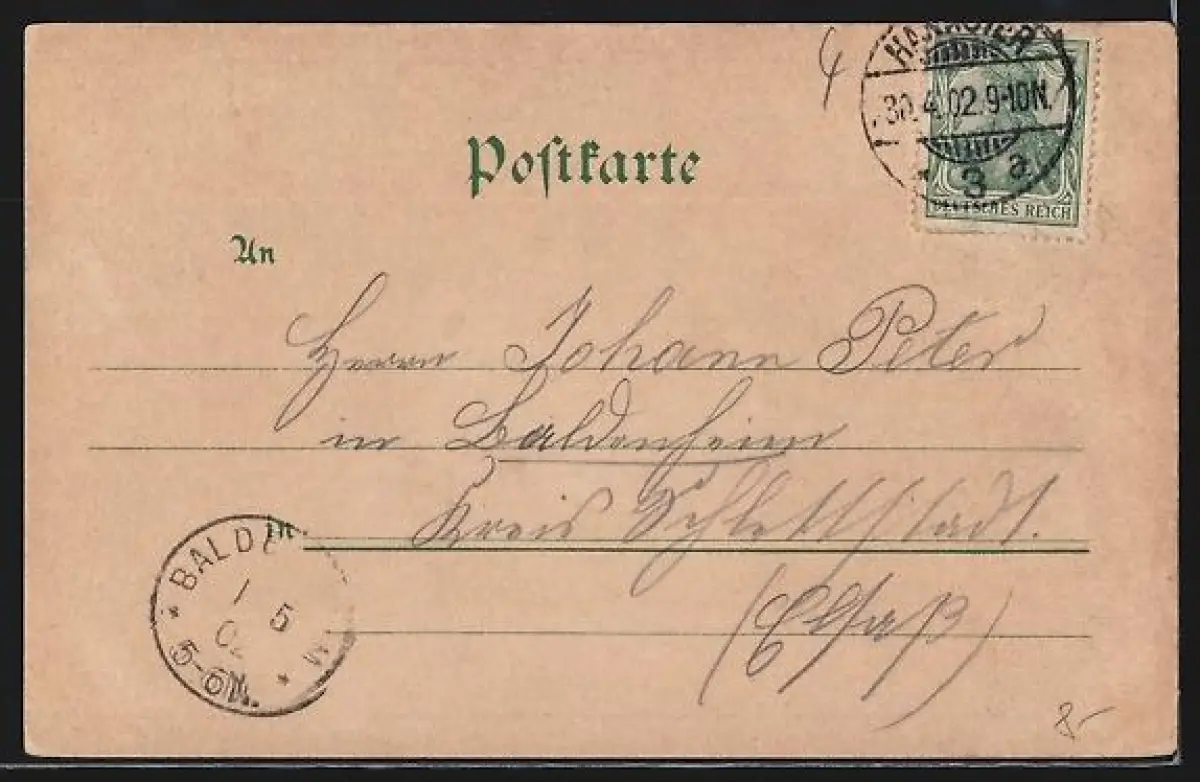 4
HANNOVER
30.4.02.9-10N.
3 a
DEUTSCHES REICH
Postkarte
An
Herrn Johann Peter
in Baldenheim
in Kreis Schlettstadt.
(Elsaß)
BALDE
1 5
02
5-6N.